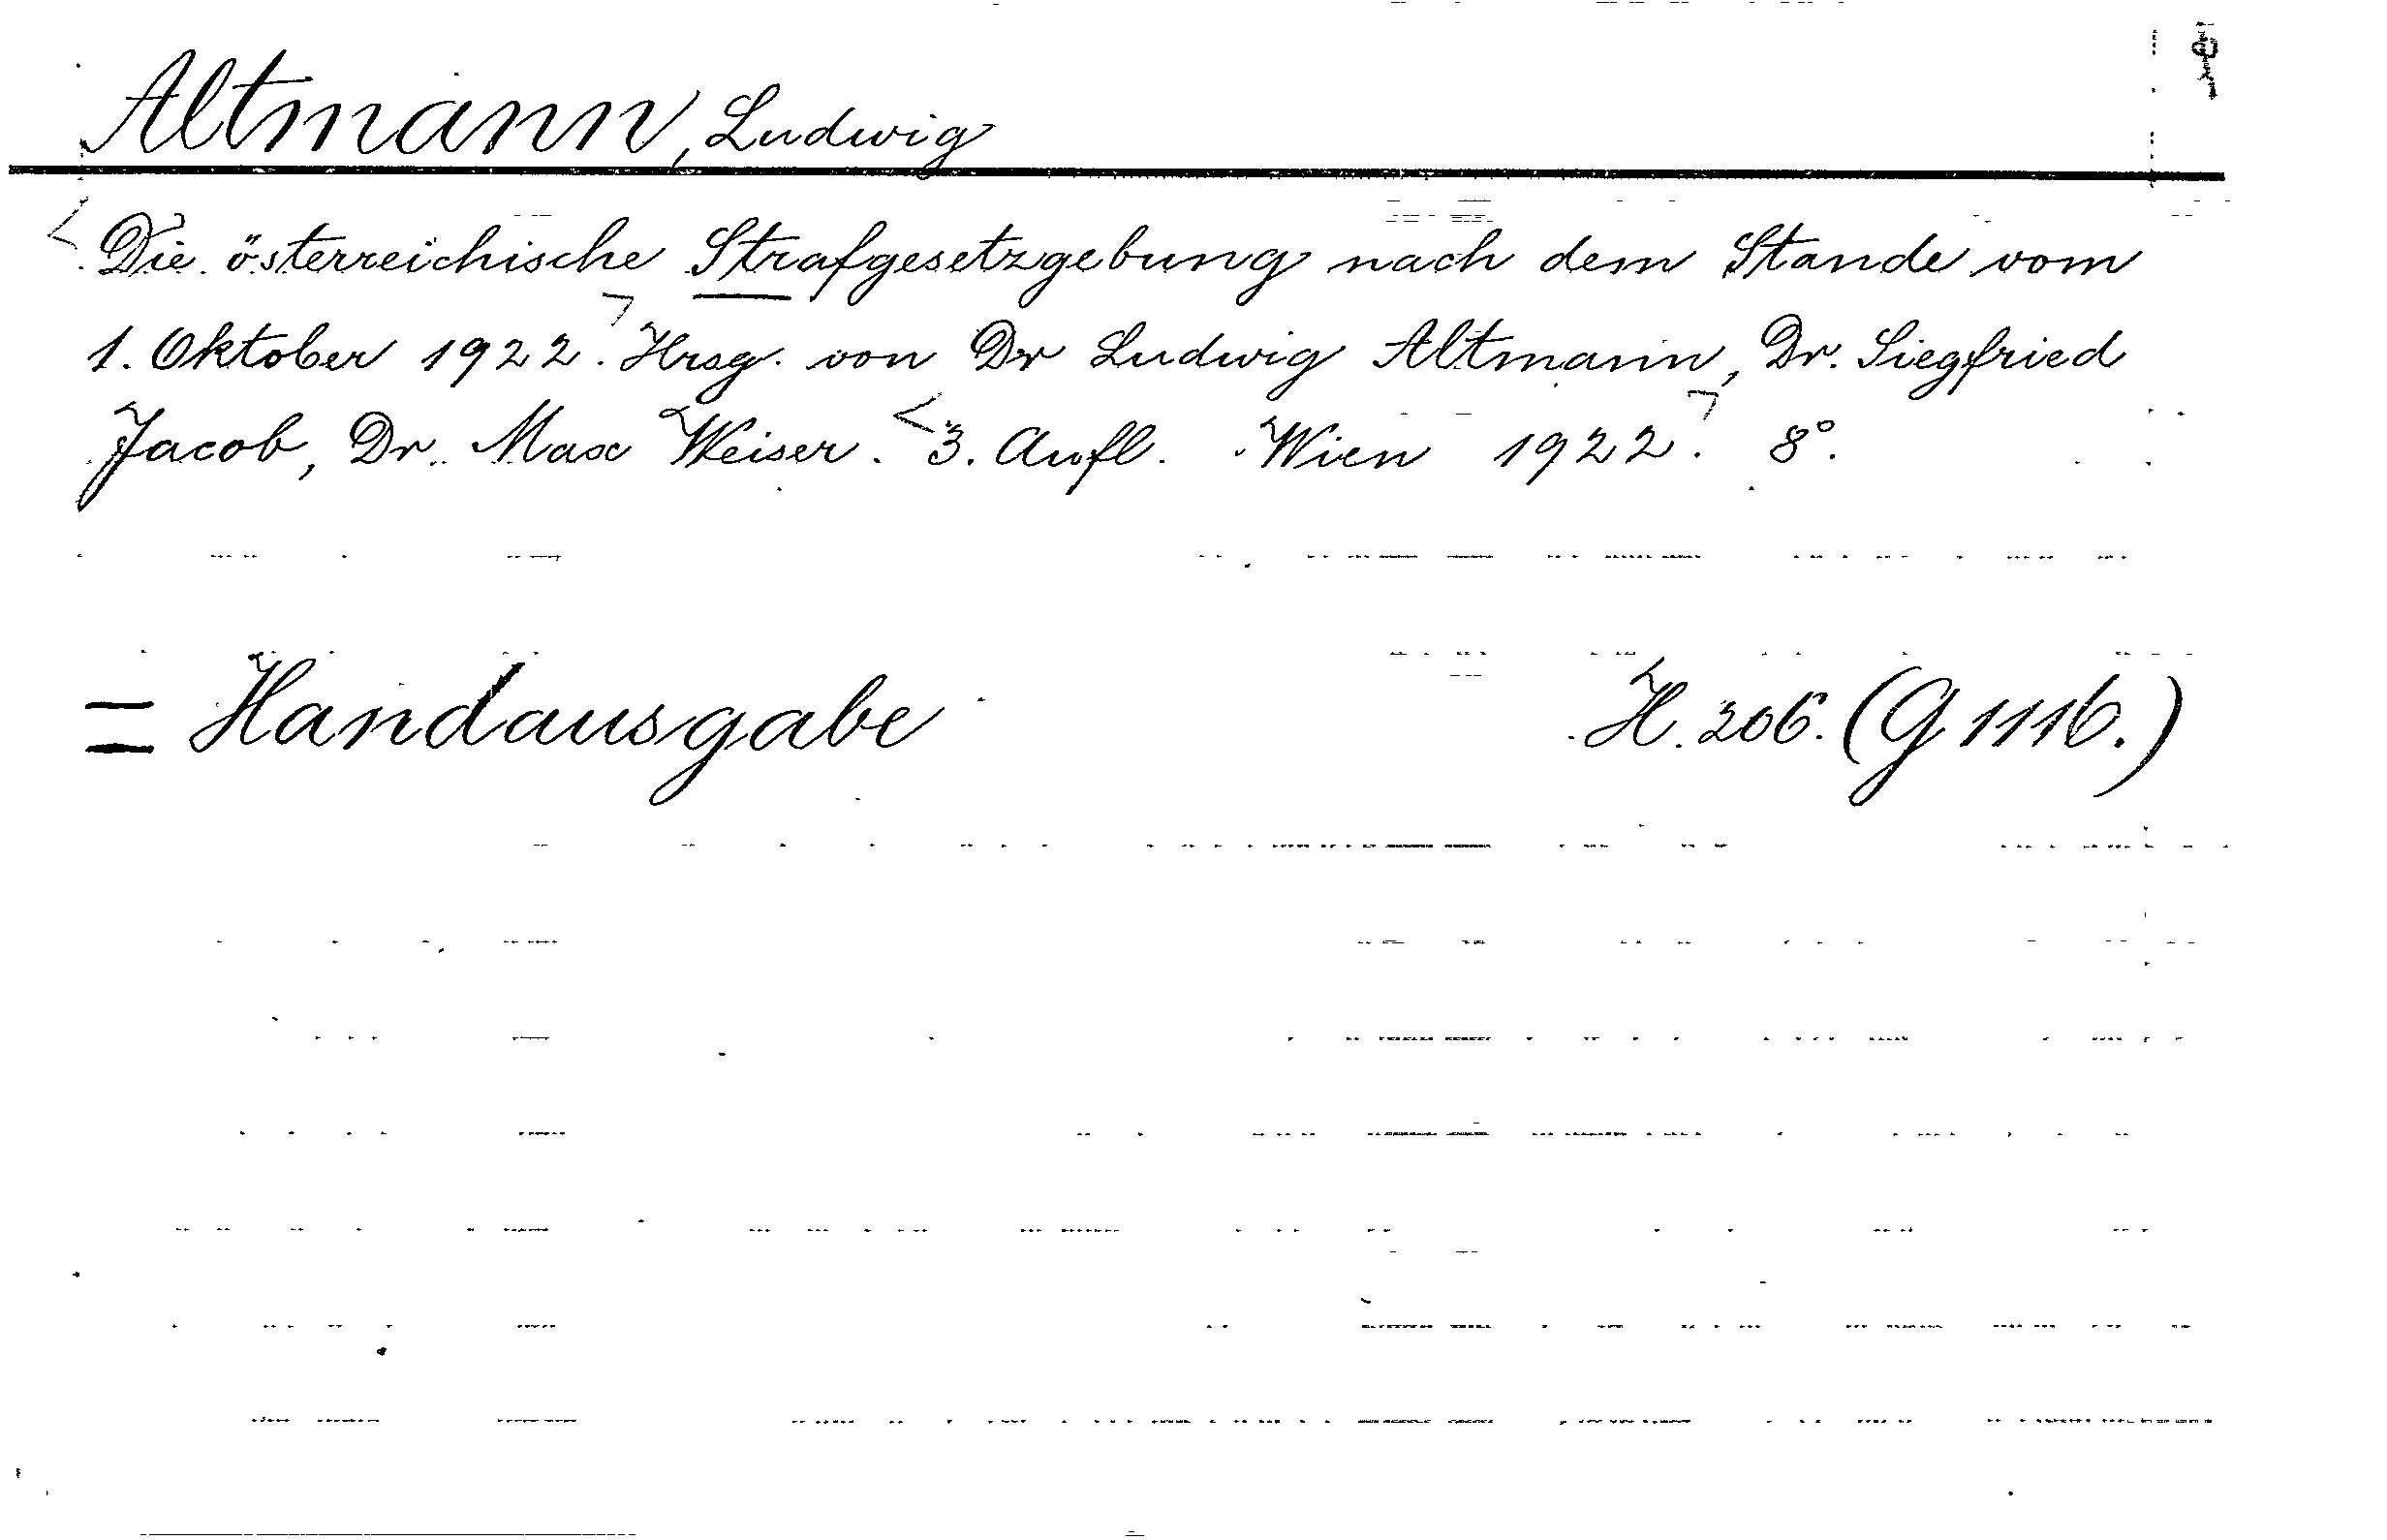 Altmann, Ludwig
<Die österreichische Strafgesetzgebung nach dem Stande vom
1. Oktober 1922.> Hrsg. von Dr Ludwig Altmann, Dr. Siegfried
Jacob, Dr. Max Weiser. <3. Aufl. Wien 1922.> 8°.
= Handausgabe H. 306. (G 1116.)